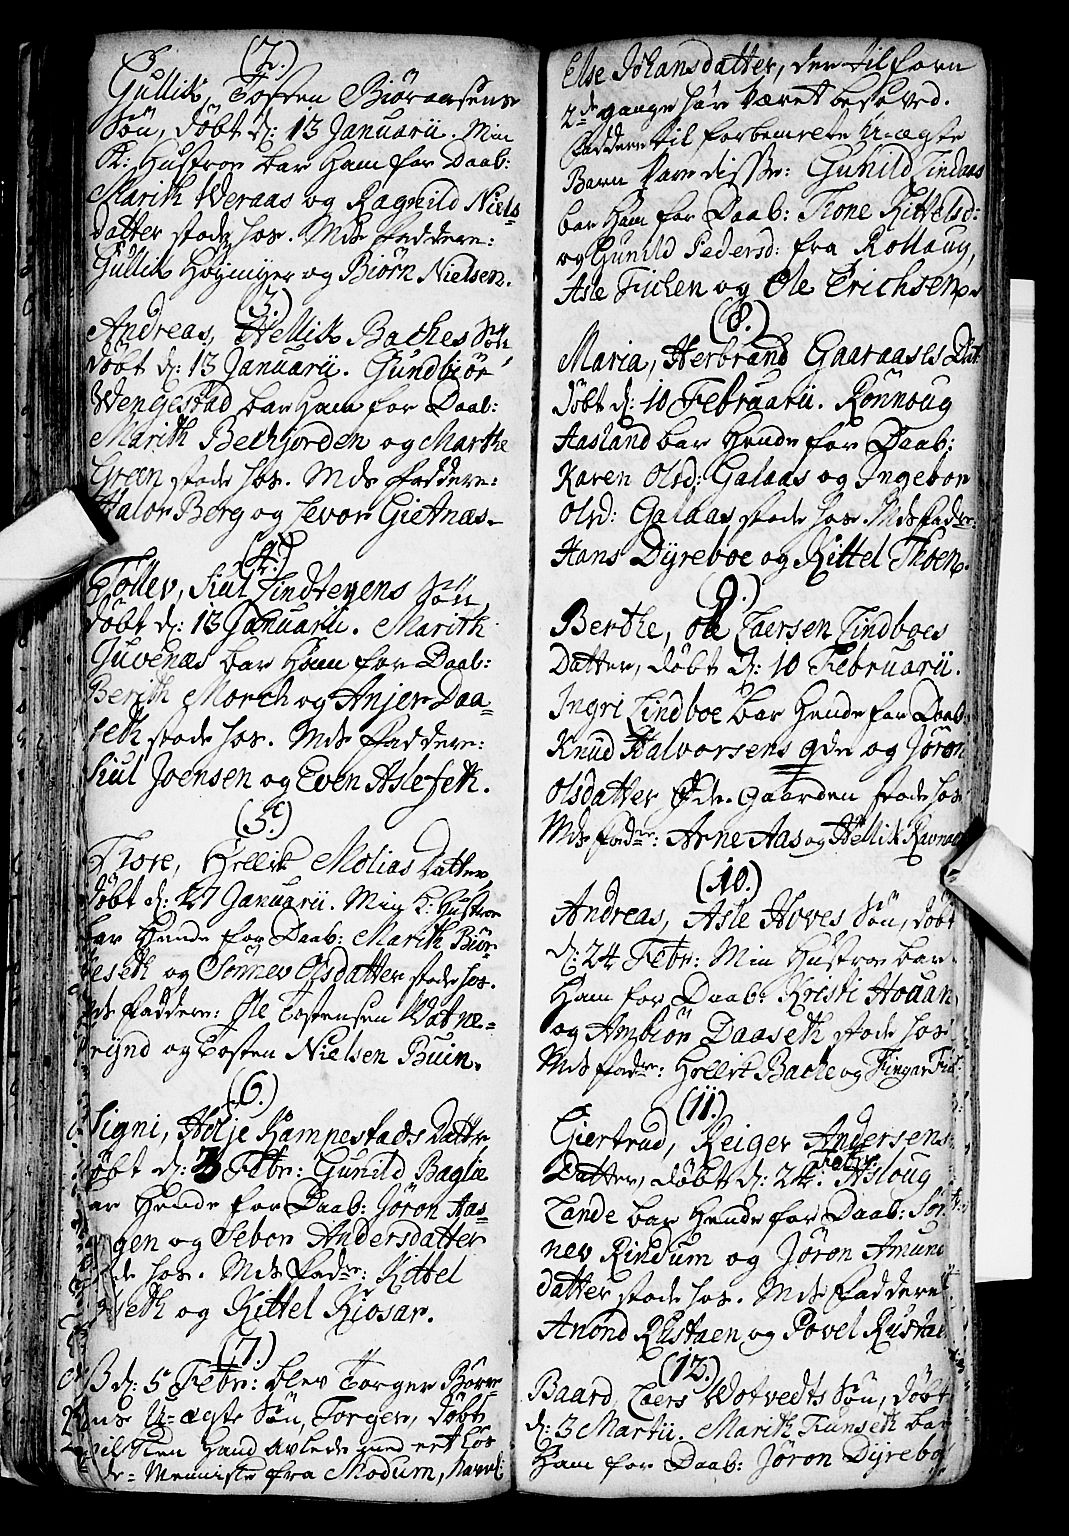 (2.)
Gullik, Tosten Biöraasens
Sön, döbt d: 13 Januarii. Min
K: Hustroe bar Ham for Daab:
Marith Weraas og Ragnild Niels
datter stode hos. Mds Faddere:
Gullik Höymyer og Biörn Nielsen.
(3.)
Andreas, Hellik Baches Sön
döbt d: 13 Januarii. Gundbiör
Wengestad bar Ham for Daab:
Marith Bechjorden og Marthe
Green stode hos. Mds Faddere:
Halor Berg og Sevor Gietnæs.
(4.)
Tollev, Siul Lindtevens Sön,
döbt d: 13 Januarii. Marith
Juvenæs bar Ham for Daab:
Berith Morch og Anjer Daa=
seth stode hos. Mds Faddere:
Siul Joensen og Even Aslefeth.
(5.)
Thore, Hellik Molias Datter,
döbt d: 27 Januarii. Min K: Hustroe
bar Hende for Daab: Marith Biör-
neseth og Sönnev Olsdatter stode hos.
Mds Faddere: Ole Tostensen Watne=
brynd og Tosten Nielsen Buin.
(6.)
Signi, Hölje Kampestads Datter
döbt d: 3 Febr: Gunild Baglie
bar Hende for Daab: Jöron Aas-
gen og Sebor Andersdatter
stode hos. Mds Fadre: Kittel
seth og Kittel Kiosar.
(7.)
d: 5 Febr: blev Torger Börre
sens U=ægte Sön, Torger, döbt,
vilken Hand avlede med ert Løs
de=Menniske fra Modum, navnl:
Else Johansdatter, der tilforn
2de gange hår været besoved.
Faddere til forbemelte U-ægte
Barn vare disse: Gunild Lindaas
bar Ham for Daab: Thone Kittelsd:
og Gunild Pedersd: fra Rollaug,
Asle Fichen og Ole Erichsen.
(8.)
Maria, Herbrand Gaaraases Dat.
döbt d: 10 Februarii. Rönnoug
Aasland bar Hende for Daab:
Karen Olsd: Galaas og Ingebor
Olsd: Galaas stode hos. Mds Fadre:
Hans Dyreboe og Kittel Thoen.
(9.)
Berthe, Ole Laersen Lindboes
Datter, döbt d: 10 Februarii.
Ingri Lindboe bar Hende for Daab:
Knud Halvorsens qde og Jöron
Olsdatter Öde-Gaarden stode hos
Mds Fadre: Arne Aas og Hellik Ravnaas
(10.)
Andreas, Asle Hoves Sön, döbt
d: 24 Febr: Min Hustroe bar
Ham for Daab: Kresti Hovan
og Ambiör Daaseth stode hos:
Mds Fadre: Hellik Bache og Fingar
(11.)
Giertrud, Reiger Andersens
Datter, döbt d: 24. Asloug
Lande bar Hende for Daab: Sön-
nev Rindum og Jöron Amund
datter stode hos. Mds Faddere:
Anond Rustaen og Povel Rustae
(12.)
Baard, Laers Wotvedts Sön, döbt
d: 3 Martii. Marith Tunseth bar
Ham for Daab: Jöron Dyreboe